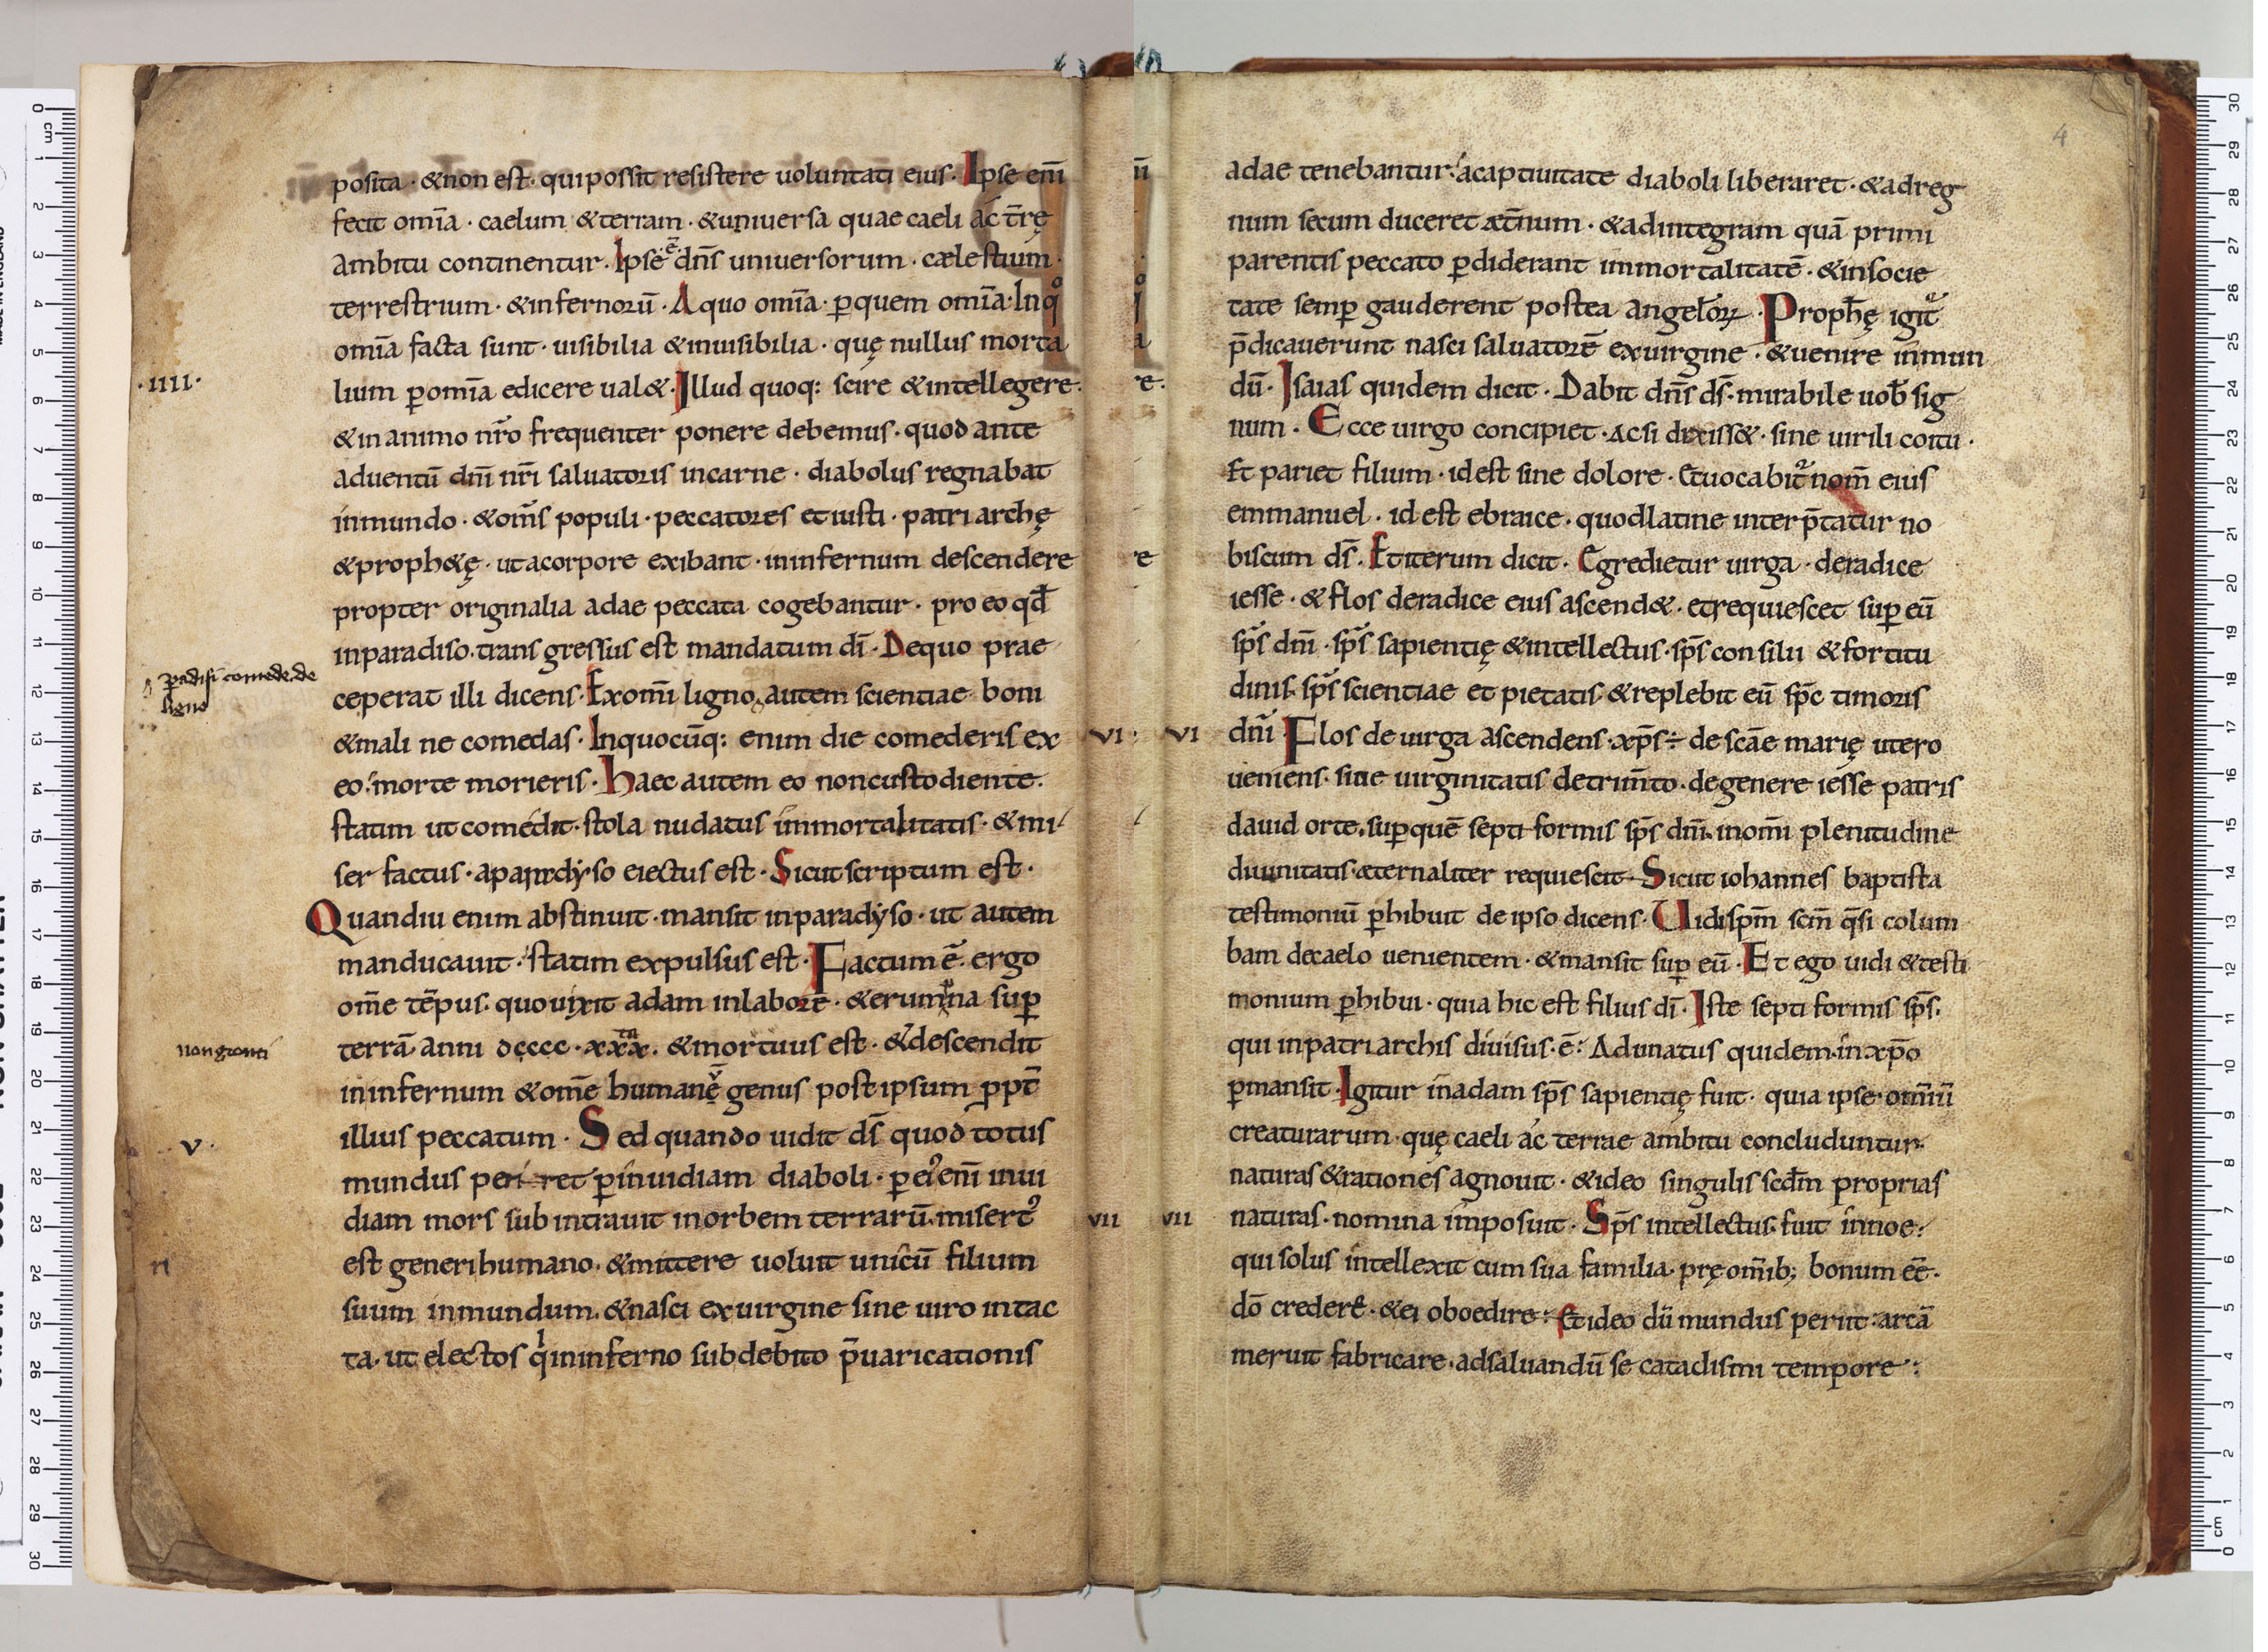 posita · &non est̄ · quipossit resistere uoluntati eius · Ipse enī
fecit omīa · caelum &terram · &uniuersa quae caeli ac t̄rę
ambitu continentur · Ipse ē dn̄s uniuersorum · cælestium ·
terrestrium · &infernorū · A quo omīa · p̱quem omīa · In qͦ
omīa facta sunt · uisibilia &inuisibilia · quę nullus morta
·IIII·
lium p̱omīa edicere ual& · Illud quoq: scire &intellegere ·
&in animo nr̄o frequenter ponere debemus · quod ante
aduentū dn̄i nr̄i saluatoris incarne · diabolus regnabat
inmundo · &om̄s populi · peccatores et iusti · patriarchę
&proph&ę · ut acorpore exibant · ininfernum descendere
propter originalia adae peccata cogebantur · pro eo qd̄
inparadiso · transgressus est mandatum dī · Dequo prae
p̱adisi comede · de
ligno
ceperat illi dicens · Exomī ligno autem scientiae boni
&mali ne comedas · Inquocūq: enim die comederis ex
eo · morte morieris · Haec autem eo noncustodiente ·
statim ut comedit · stola nudatus immortalitatis · &mi
ser factus · aparadyso eiectus est · Sicut scriptum est ·
Quandiu enim abstinuit · mansit inparadyso · ut autem
manducauit · statim expulsus est · Factum ē · ergo
om̄e tēpus · quo uixit adam inlabore · &erumna sup̱
nongenti
terrā · anni dcccc · xxx · &mortuus est · &descendit
ininfernum &om̄e humanę genus post ipsum p̱pt̄
V ·
illius peccatum · Sed quando uidit ds̄ quod totus
mundus periret p̱inuidiam diaboli · p̱ ei᾿ enī inui
diam mors subintrauit inorbem terrarū · misert᾿
est generi humano · &mittere uoluit unicū filium
suum inmundum · &nasci exuirgine sine uiro intac
ta · ut electos qͥ ininferno subdebito p̄uaricationis
4
adae tenebantur · acaptiuitate diaboli liberaret · &adreg
num secum duceret æt̄num · &adintegram quā primi
parentis peccato p̱diderant immortalitatē · &insocie
tate semp̱ gauderent postea angelorꝝ · Proph̄ę igit᾿
p̄dicauerunt nasci saluatorē exuirgine · &uenire inmun
dū · Isaias quidem dicit · Dabit dn̄s ds̄ · mirabile uob̄ sig
num · Ecce uirgo concipiet · ac si dixiss& · sine uirili coitu ·
Et pariet filium · id est sine dolore · Et uocabit᾿ nom̄ eius
emmanuel · id est ebraice · quod latine interp̄tatur no
biscum ds̄ · Et iterum dicit · Egredietur uirga · deradice
iesse · & flos deradice eius ascend& · et requiescet sup̱ eū
sp̄s dn̄i · sp̄s sapientię &intellectus · sp̄s consilii &fortitu
dinis · sp̄s scientiae et pietatis · &replebit eū sp̄c timoris
VI
dn̄i · Flos de uirga ascendens · xp̄s ÷ de scāe marię utero
ueniens · sine uirginitatis detrim̄to · degenere iesse patris
dauid orte · sup̱quē septiformis sp̄s dn̄i · inom̄i plenitudine
diuinitatis · æternaliter requiescit · Sicut iohannes baptista
testimoniū p̱hibuit de ipso dicens · Uidi sp̄m scm̄ q̄si colum
bam decaelo uenientem · &mansit sup̱ eū · Et ego uidi &testi
monium p̱hibui · quia hic est filius dī · Iste septiformis sp̄s ·
qui inpatriarchis diuisus · ē · Adunatus quidem · in xp̄o
p̱mansit · Igitur inadam sp̄s sapientię fuit · quia ipse om̄iū
creaturarum · quę caeli ac terrae ambitu concluduntur ·
naturas &rationes agnouit · &ideo singulis scd̄m proprias
VII
naturas · nomina imposuit · Sp̄s intellectus · fuit innoe ·
qui solus intellexit cum sua familia · pręom̄ib; bonum eē̄ ·
dō credere · &ei oboedire · Et ideo dū mundus periit · arcā
meruit fabricare · adsaluandū se cataclismi tempore ·